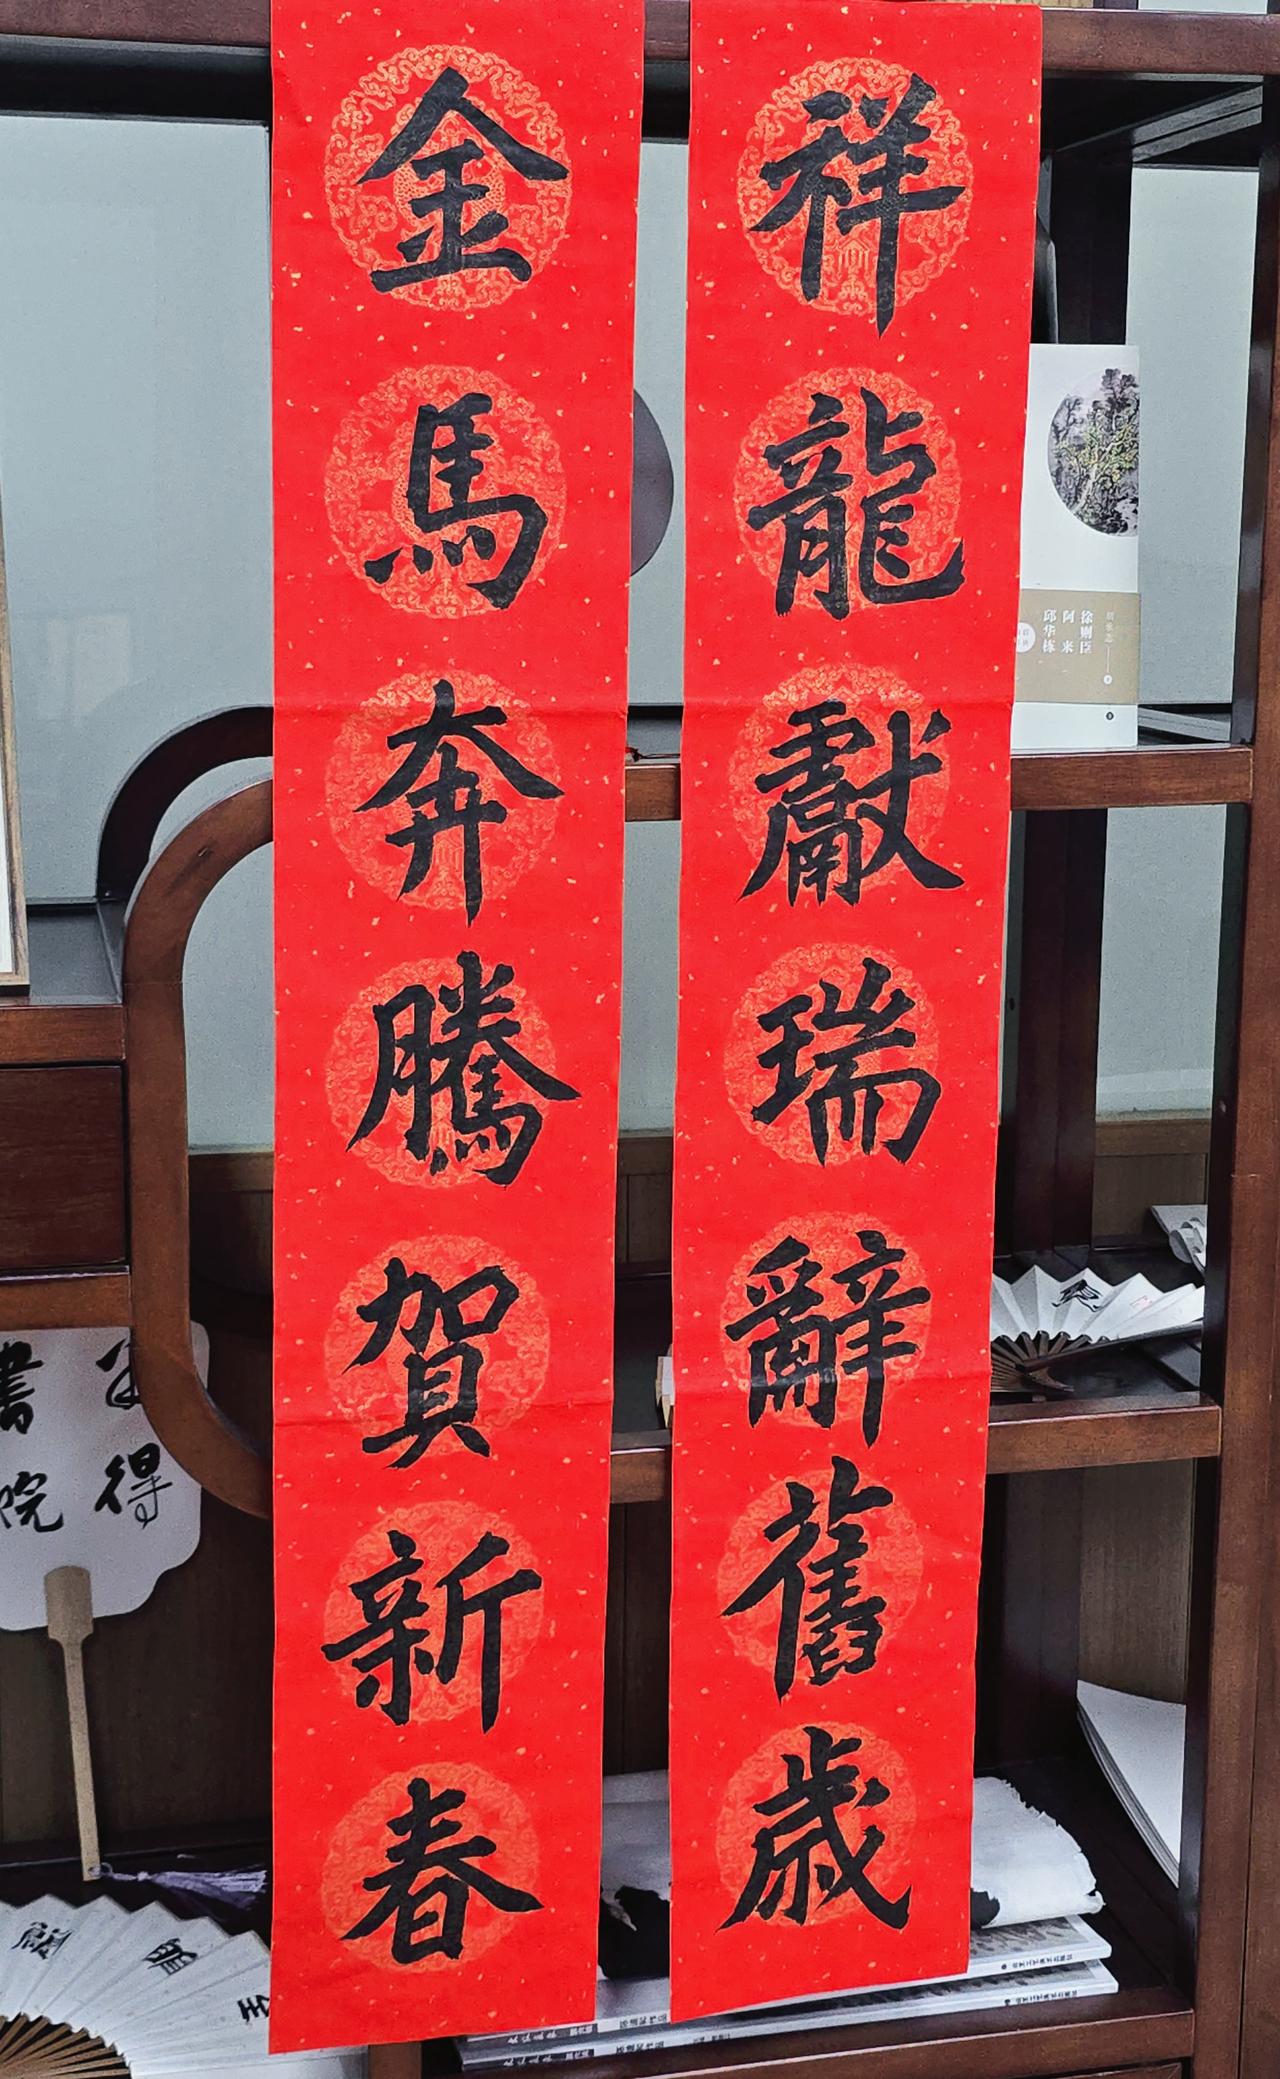 祥龍獻瑞辭舊歲
金馬奔騰賀新春
徐则臣
阿来
邱华栋
得
書院